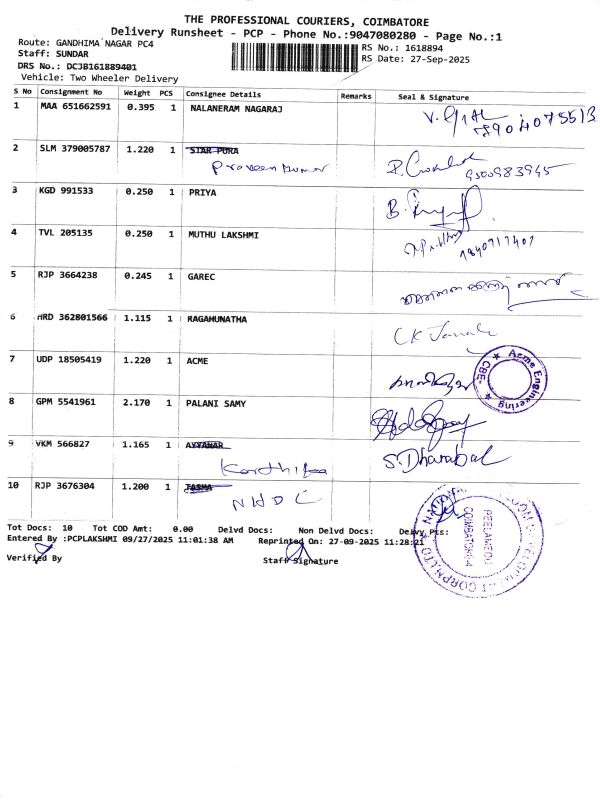 THE PROFESSIONAL COURIERS, COIMBATORE
Delivery Runsheet - PCP - Phone No.:9047080280 - Page No.:1
Route: GANDHIMA NAGAR PC4
RS No.: 1618894
Staff: SUNDAR
RS Date: 27-Sep-2025
DRS No.: DCJB161889401
Vehicle: Two Wheeler Delivery
S No Consignment No Weight PCS Consignee Details Remarks Seal & Signature
1 MAA 651662591 0.395 1 NALANERAM NAGARAJ
8904075513
2 SLM 379005787 1.220 1 STAR PURA
Praveen kumar
9500983945
3 KGD 991533 0.250 1 PRIYA
4 TVL 205135 0.250 1 MUTHU LAKSHMI
5 RJP 3664238 0.245 1 GAREC
6 HRD 362801566 1.115 1 RAGAHUNATHA
7 UDP 18505419 1.220 1 ACME
Acme Engineering
CBE-
8 GPM 5541961 2.170 1 PALANI SAMY
9 VKM 566827 1.165 1 AYYANAR
Karthika
S. Dhanabal
10 RJP 3676304 1.200 1
NHDC
PEELAMEDU
COIMBATORE-4
Tot Docs: 10 Tot COD Amt: 0.00 Delvd Docs: Non Delvd Docs: Delvy Pts:
Entered By :PCPLAKSHMI 09/27/2025 11:01:38 AM Reprinted On: 27-09-2025 11:28:21
Verified By
Staff Signature